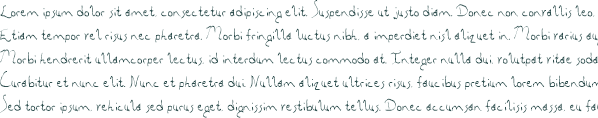 Lorem ipsum dolor sit amet, consectetur adipiscing elit. Suspendisse ut justo diam. Donec non convallis leo.
Etiam tempor vel risus nec pharetra. Morbi fringilla luctus nibh, a imperdiet nisl aliquet in. Morbi varius au
Morbi hendrerit ullamcorper lectus, id interdum lectus commodo at. Integer nulla dui, volutpat vitae soda
Curabitur et nunc elit. Nunc et pharetra dui. Nullam aliquet ultrices risus, faucibus pretium lorem bibendum
Sed tortor ipsum, vehicula sed purus eget, dignissim vestibulum tellus. Donec accumsan facilisis massa, eu fa